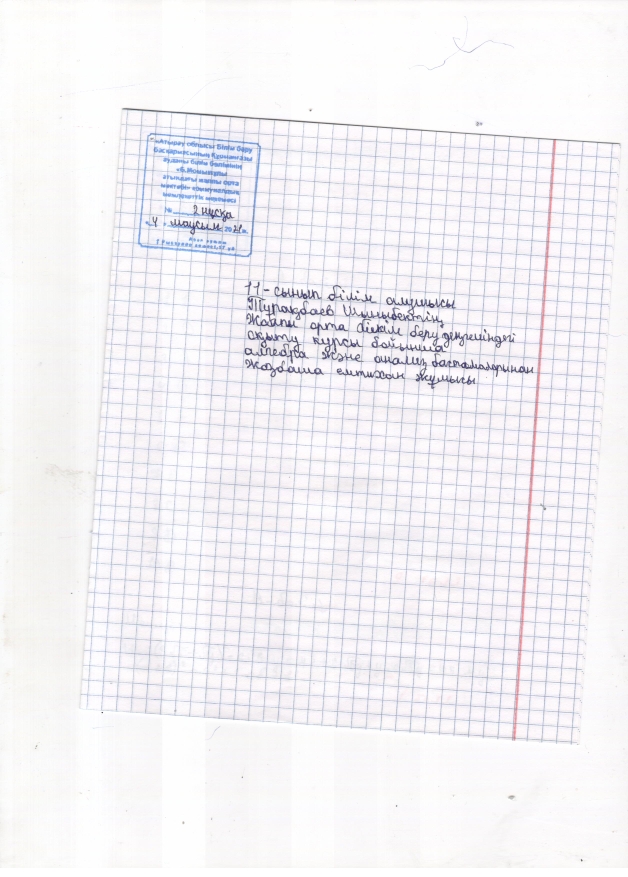 «Атырау облысы Білім беру
басқармасының Құрманғазы
ауданы білім бөлімінің
атындағы жалпы орта
мектебі» коммуналдық
мемлекеттік мекемесі
№ 2 нұсқа
«4» маусым 20 ж.
11-сынып білім алушысы
Тұрақбаев Шыңыбектің,
Жалпы орта білім беру деңгейіндегі
Оқыту курсы бойынша
алгебра және анализ бастамаларынан
Жазбаша емтихан жұмысы